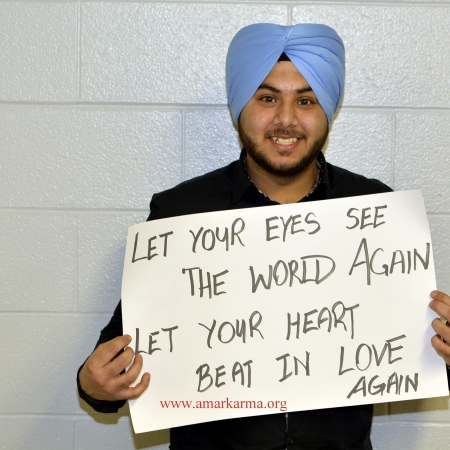 LET YOUR EYES SEE
THE WORLD AGAIN
LET YOUR HEART
BEAT IN LOVE
AGAIN
www.amarkarma.org